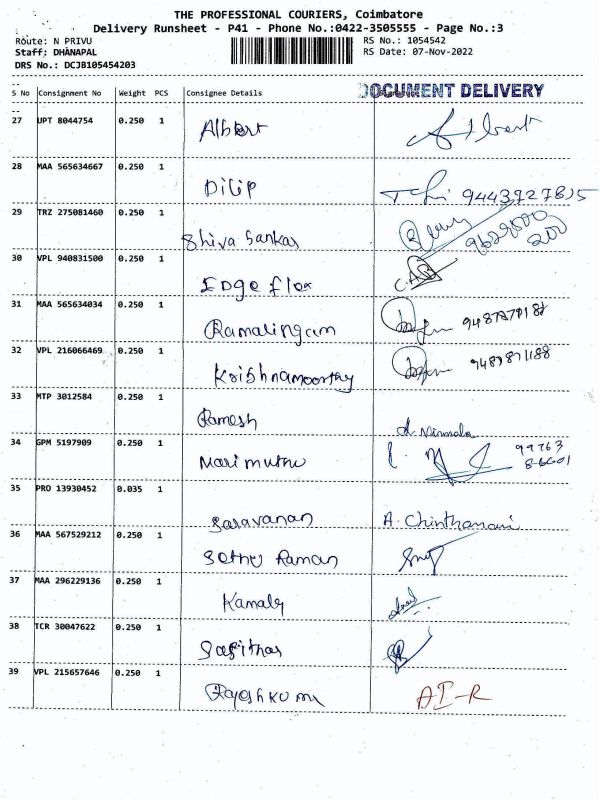 THE PROFESSIONAL COURIERS, Coimbatore
Delivery Runsheet - P41 - Phone No.:0422-3505555 - Page No.:3
Route: N PRIVU RS No.: 1054542
Staff: DHANAPAL RS Date: 07-Nov-2022
DRS No.: DCJB105454203
DOCUMENT DELIVERY
S No Consignment No Weight PCS Consignee Details
27 UPT 8044754 0.250 1 Albert Albert
28 MAA 565634667 0.250 1 Dilip
29 TRZ 275081460 0.250 1 Shiva Sankar
30 VPL 940831500 0.250 1 Edge flex
31 MAA 565634034 0.250 1 Ramalingam
32 VPL 216066469 0.250 1 Krishnamoorthy
33 MTP 3012584 0.250 1 Ramesh d. Nirmala
34 GPM 5197909 0.250 1 Marimuthu 99763
35 PRO 13930452 0.035 1 Saravanan A. Chinthamani
36 MAA 567529212 0.250 1 Sethu Raman
37 MAA 296229136 0.250 1
38 TCR 30047622 0.250 1
39 VPL 215657646 0.250 1 Rajeshkumar